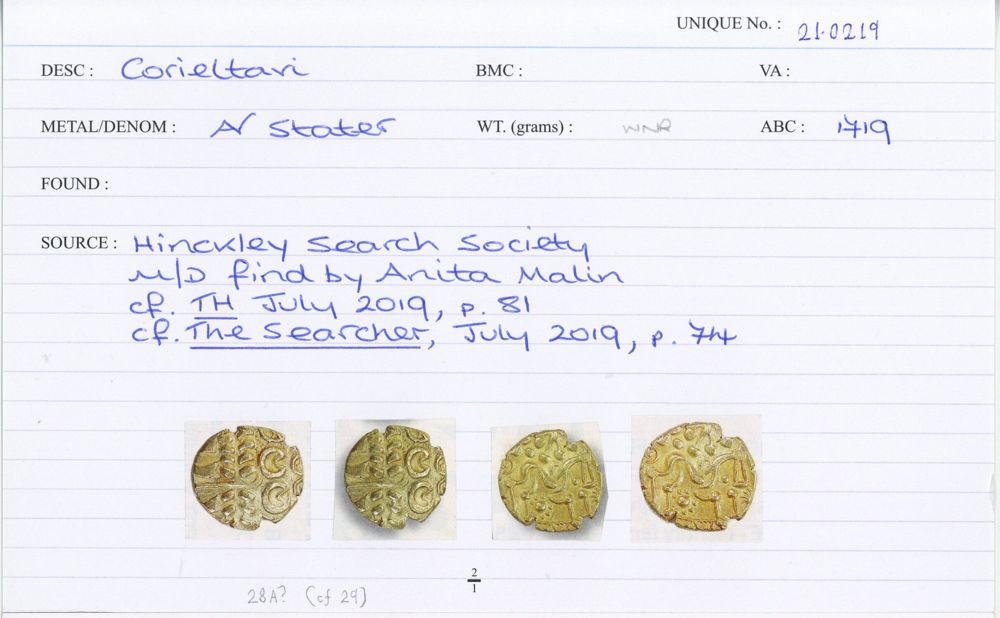 UNIQUE No. : 21.0219
DESC : Corieltavi BMC : VA :
METAL/DENOM : AV Stater WT. (grams) : WNR ABC : 1719
FOUND :
SOURCE : Hinckley Search Society
M/D find by Anita Malin
cf. TH July 2019, p. 81
cf. The Searcher, July 2019, p. 74
2
1
28A? (cf 29)